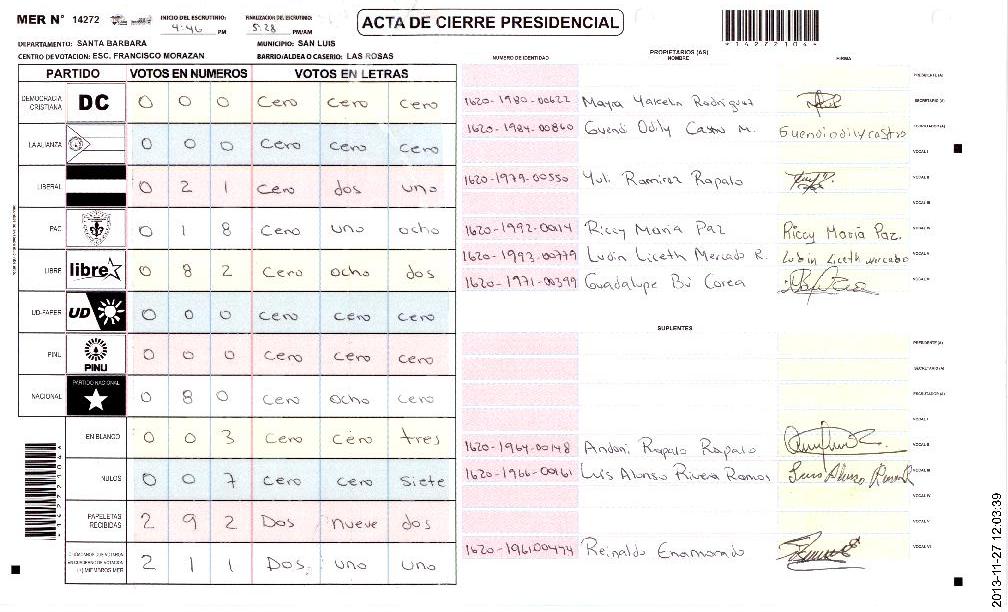 MER N° 14272 INICIO DEL ESCRUTINIO: 4:46 PM FINALIZACION DEL ESCRUTINIO: 5:28 PM/AM
ACTA DE CIERRE PRESIDENCIAL
*1427221064*
DEPARTAMENTO: SANTA BARBARA MUNICIPIO: SAN LUIS
CENTRO DE VOTACION: ESC. FRANCISCO MORAZAN BARRIO/ALDEA O CASERIO: LAS ROSAS
NUMERO DE IDENTIDAD PROPIETARIOS (AS) NOMBRE FIRMA
PARTIDO VOTOS EN NUMEROS VOTOS EN LETRAS
PRESIDENTE (A)
DEMOCRACIA CRISTIANA DC 0 0 0 Cero Cero Cero
1620-1980-00622 Mayra Yakcela Rodriguez SECRETARIO (A)
1620-1984-00860 Guendi Odily Castro M. Guendiodilycastro ESCRUTADOR (A)
LA ALIANZA 0 0 0 Cero Cero Cero
VOCAL I
LIBERAL 0 2 1 Cero dos uno
1620-1979-00550 Yuli Ramirez Rapalo VOCAL II
VOCAL III
PAC 0 1 8 Cero uno ocho
1620-1992-00014 Riccy Maria Paz Riccy Maria Paz. VOCAL IV
1620-1993-00779 Lubin Liceth Mercado R. Lubin Liceth mercado VOCAL V
LIBRE libre 0 8 2 Cero ocho dos
1620-1971-00399 Guadalupe Bú Corea VOCAL VI
UD-FAPER UD 0 0 0 Cero Cero Cero
SUPLENTES
PRESIDENTE (A)
PINU PINU 0 0 0 Cero Cero Cero
SECRETARIO (A)
NACIONAL PARTIDO NACIONAL 0 8 0 Cero Ocho Cero
ESCRUTADOR (A)
VOCAL I
EN BLANCO 0 0 3 Cero Cero tres
1620-1964-00148 Andoni Rapalo Rapalo VOCAL II
NULOS 0 0 7 Cero Cero Siete
1620-1966-00161 Luis Alonso Rivera Ramos VOCAL III
VOCAL IV
PAPELETAS RECIBIDAS 2 9 2 Dos nueve dos
VOCAL V
CIUDADANOS QUE VOTARON EN CUADERNO DE VOTACION (+) MIEMBROS MER 2 1 1 Dos uno uno
1620-1961-00474 Reinaldo Enamorado VOCAL VI
2013-11-27 12:03:39